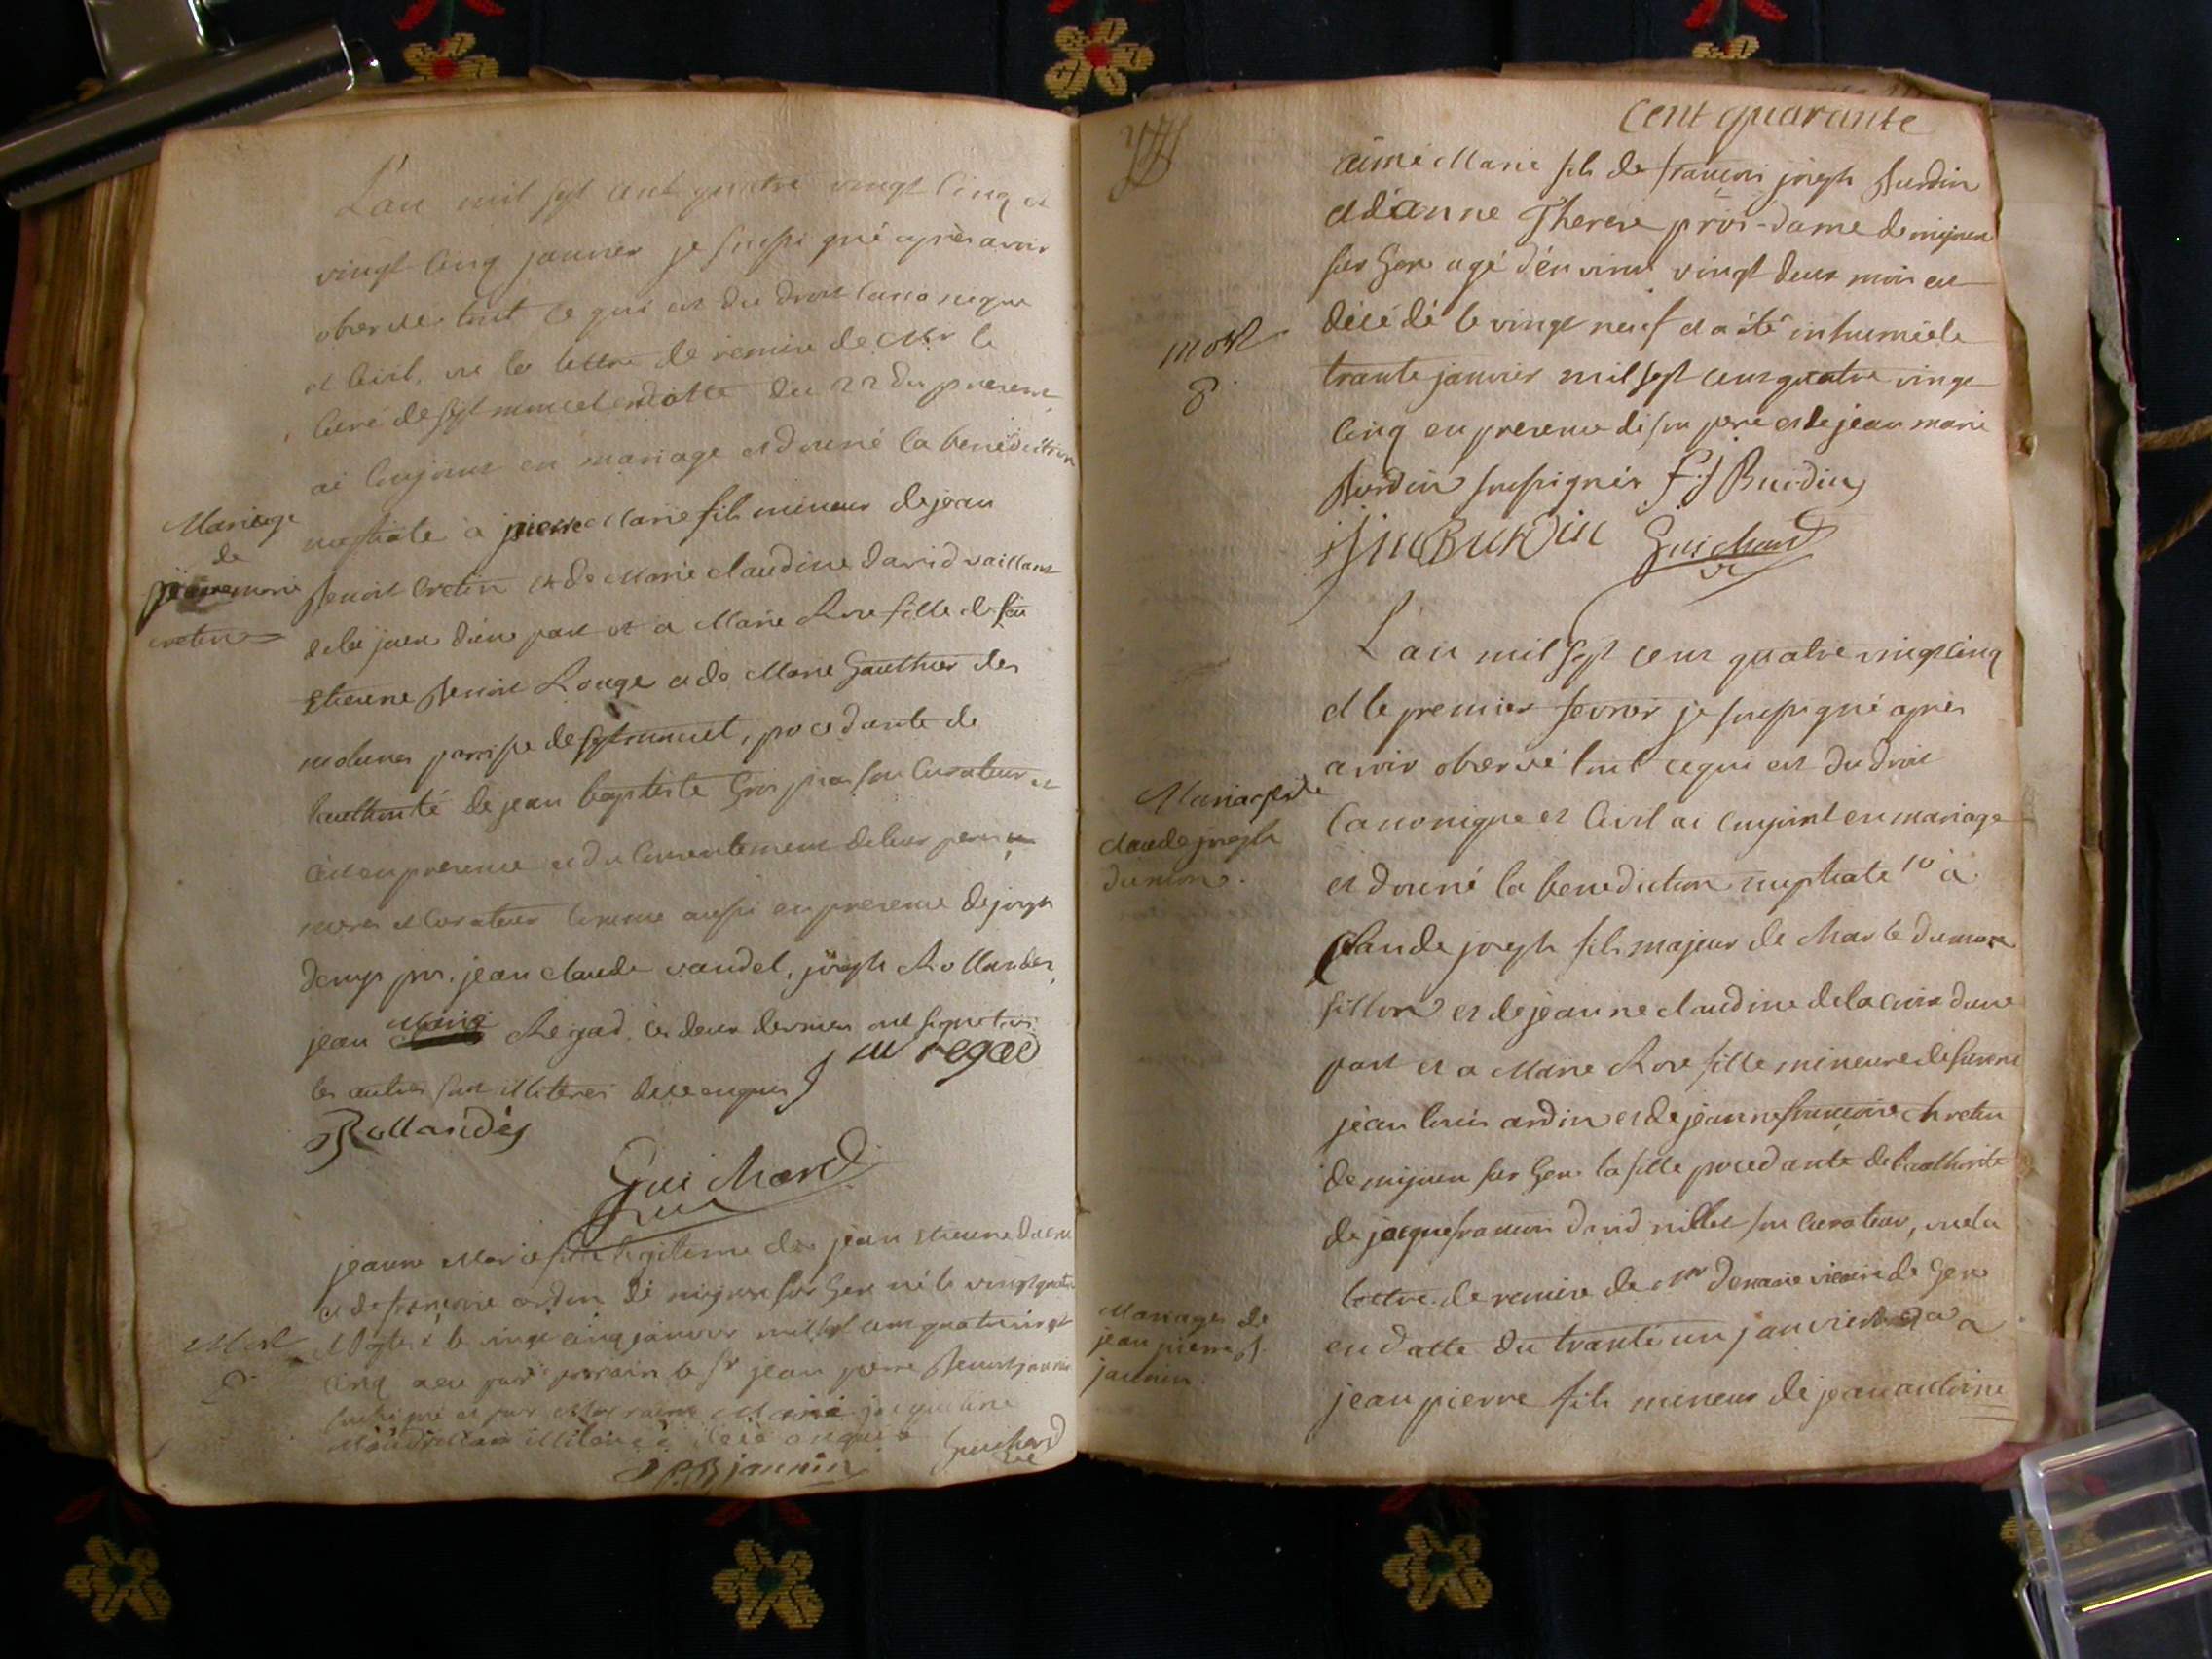 L'an mil sept cent quatre vingt cinq et
vingt cinq janvier je soussigné après avoir
observer tout ce qui est du droit canonique
et civil, vu la lettre de remise de Mr le
curé de septmoncel en datte du 22 du présent
ai conjoint en mariage et donné la bénédiction
Mariage
de
pierre marie
cretin
nuptiale à pierre Marie fils mineur de jean
Benoit Cretin et de Marie claudine david vaillant
de la joux d'une part et a Marie Rose fille de feu
Etienne Benoit Rouge et de Marie Gauthier des
molunes paroisse de septmoncel, procedante de
l'authorité de jean baptiste Gros son curateur et
en presence et du consentement de leur
meres et curateur comme aussi en presence de joseph
jean claude vandel, joseph Rollandez,
jean Marie Regad. les deux derniers ont signe
les autres sont illiteres de ce enquis J M regad
J Rollandés
Guichard
curé
jeanne Marie fille legitime de jean Etienne
et de francoise ardin de mijoux sur Gex né le vingt quatre
Mort
8
Baptisé le vingt cinq janvier mil sept cent quatre vingt
cinq a eu pour parrain le Sr jean pierre Benoit jannin
soussigné et pour Marraine Marie jaqueline
illiterée de ce enquise
J P B jannin Guichard
curé
Cent quarante
aimé Marie fils de francois joseph Burdin
et d'anne Therese pros-dame de mijoux
sur Gex agé d'environ vingt deux mois est
mort
8
décédé le vingt neuf et a été inhumé le
trante janvier mil sept cent quatre vingt
cinq en presence de son pere et de jean marie
Burdin soussignés F J Burdin
J M Burdin Guichard
curé
L'an mil sept cent quatre vingt cinq
et le premier fevrier je soussigné après
avoir observé tout ce qui est du droit
Mariage de
claude joseph
dumont.
canonique et civil ai conjoint en mariage
et donné la benediction nuptiale 1o à
Claude joseph fils majeur de Charle
fillion et de jeanne claudine delacroix d'une
part et a Marie Rose fille mineure de
jean louis ardin et de jeanne francoise Chretin
de mijoux sur Gex. la fille procedante de l'authorité
de jacque francois david nillet son curateur, vu la
lettre de remise de Mr vicaire de Gex
Mariage de
jean pierre B.
jannin.
en datte du trante un janvier 2o a
jean pierre fils mineur de jean antoine